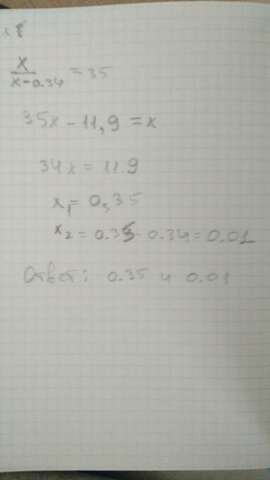 x
/
x-0.34 = 35
35x - 11,9 = x
34x = 11.9
x₁ = 0,35
x₂ = 0.35 - 0.34 = 0.01
Ответ: 0.35 и 0.01